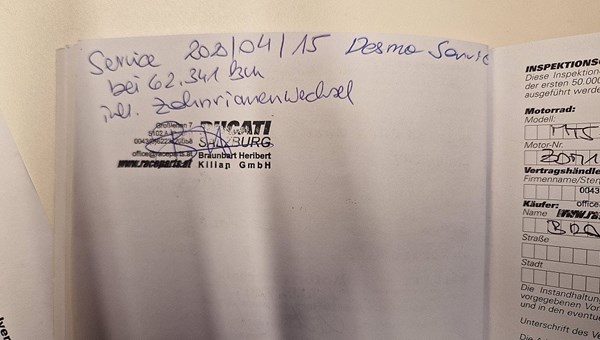 Service 2020/04/15 Desmo Service
bei 62.341 km
inkl. Zahnriemenwechsel
Großlehen 7
5102
DUCATI
SALZBURG
office@raceparts.at
Braunbart Heribert
www.raceparts.at
Killap GmbH
INSPEKTIONS
Diese Inspektion
der ersten 50.000
ausgeführt werde
Motorrad:
Modell:
MTS
Motor-Nr.
ZDM1
Vertragshändle
Firmenname/Ste
0043
Käufer:
office
Name
Straße
Stadt
Die Instandhaltun
vorgegebenen Vor
und in den eventu
Unterschrift des V